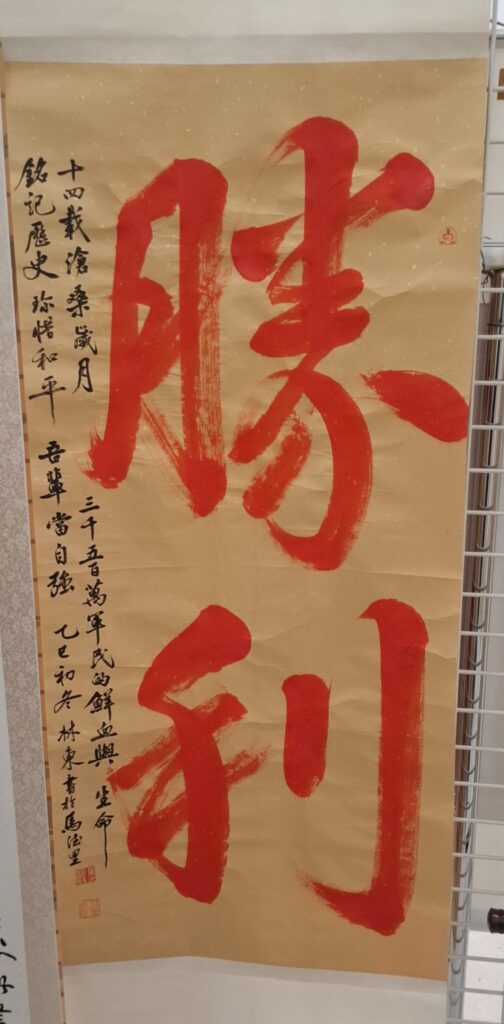 勝利
十四載滄桑歲月 三千五百萬軍民的鮮血與生命
銘記歷史 珍惜和平 吾輩當自強 乙巳初冬 林東書於馬德里